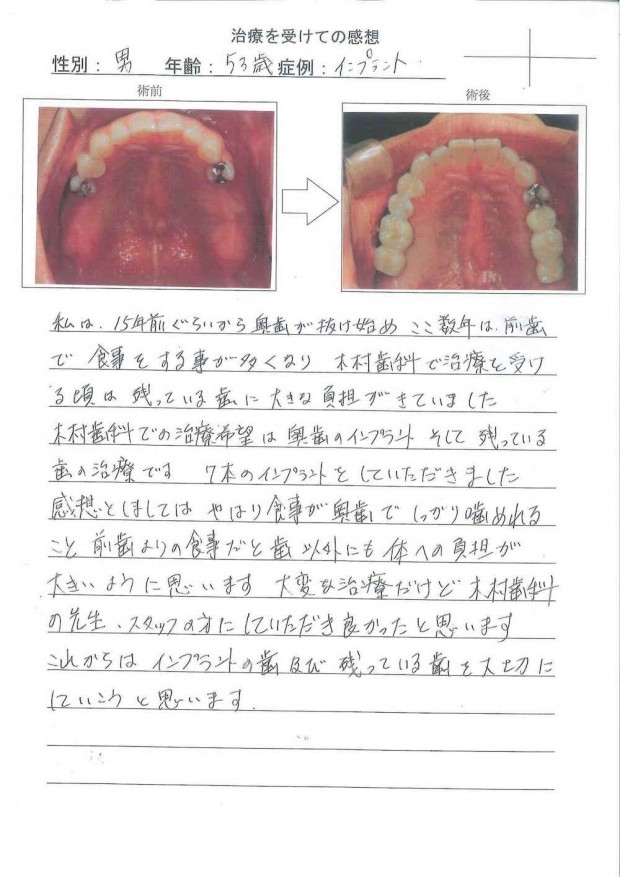 治療を受けての感想
性別：男 年齢：53歳 症例：インプラント
術前 術後
私は、15年前ぐらいから奥歯が抜け始め ここ数年は、前歯
で 食事をする事が多くなり 木村歯科で治療を受け
る頃は 残っている歯に 大きな負担がきていました
木村歯科での治療希望は 奥歯のインプラント そして 残っている
歯の治療です 7本のインプラントをしていただきました
感想としましては やはり食事が奥歯で しっかり噛めれる
こと 前歯よりの食事だと歯以外にも 体への負担が
大きいように思います 大変な治療だけど 木村歯科
の先生、スタッフの方にしていただき良かったと思います
これからは インプラントの歯及び 残っている歯を大切に
していこうと思います.